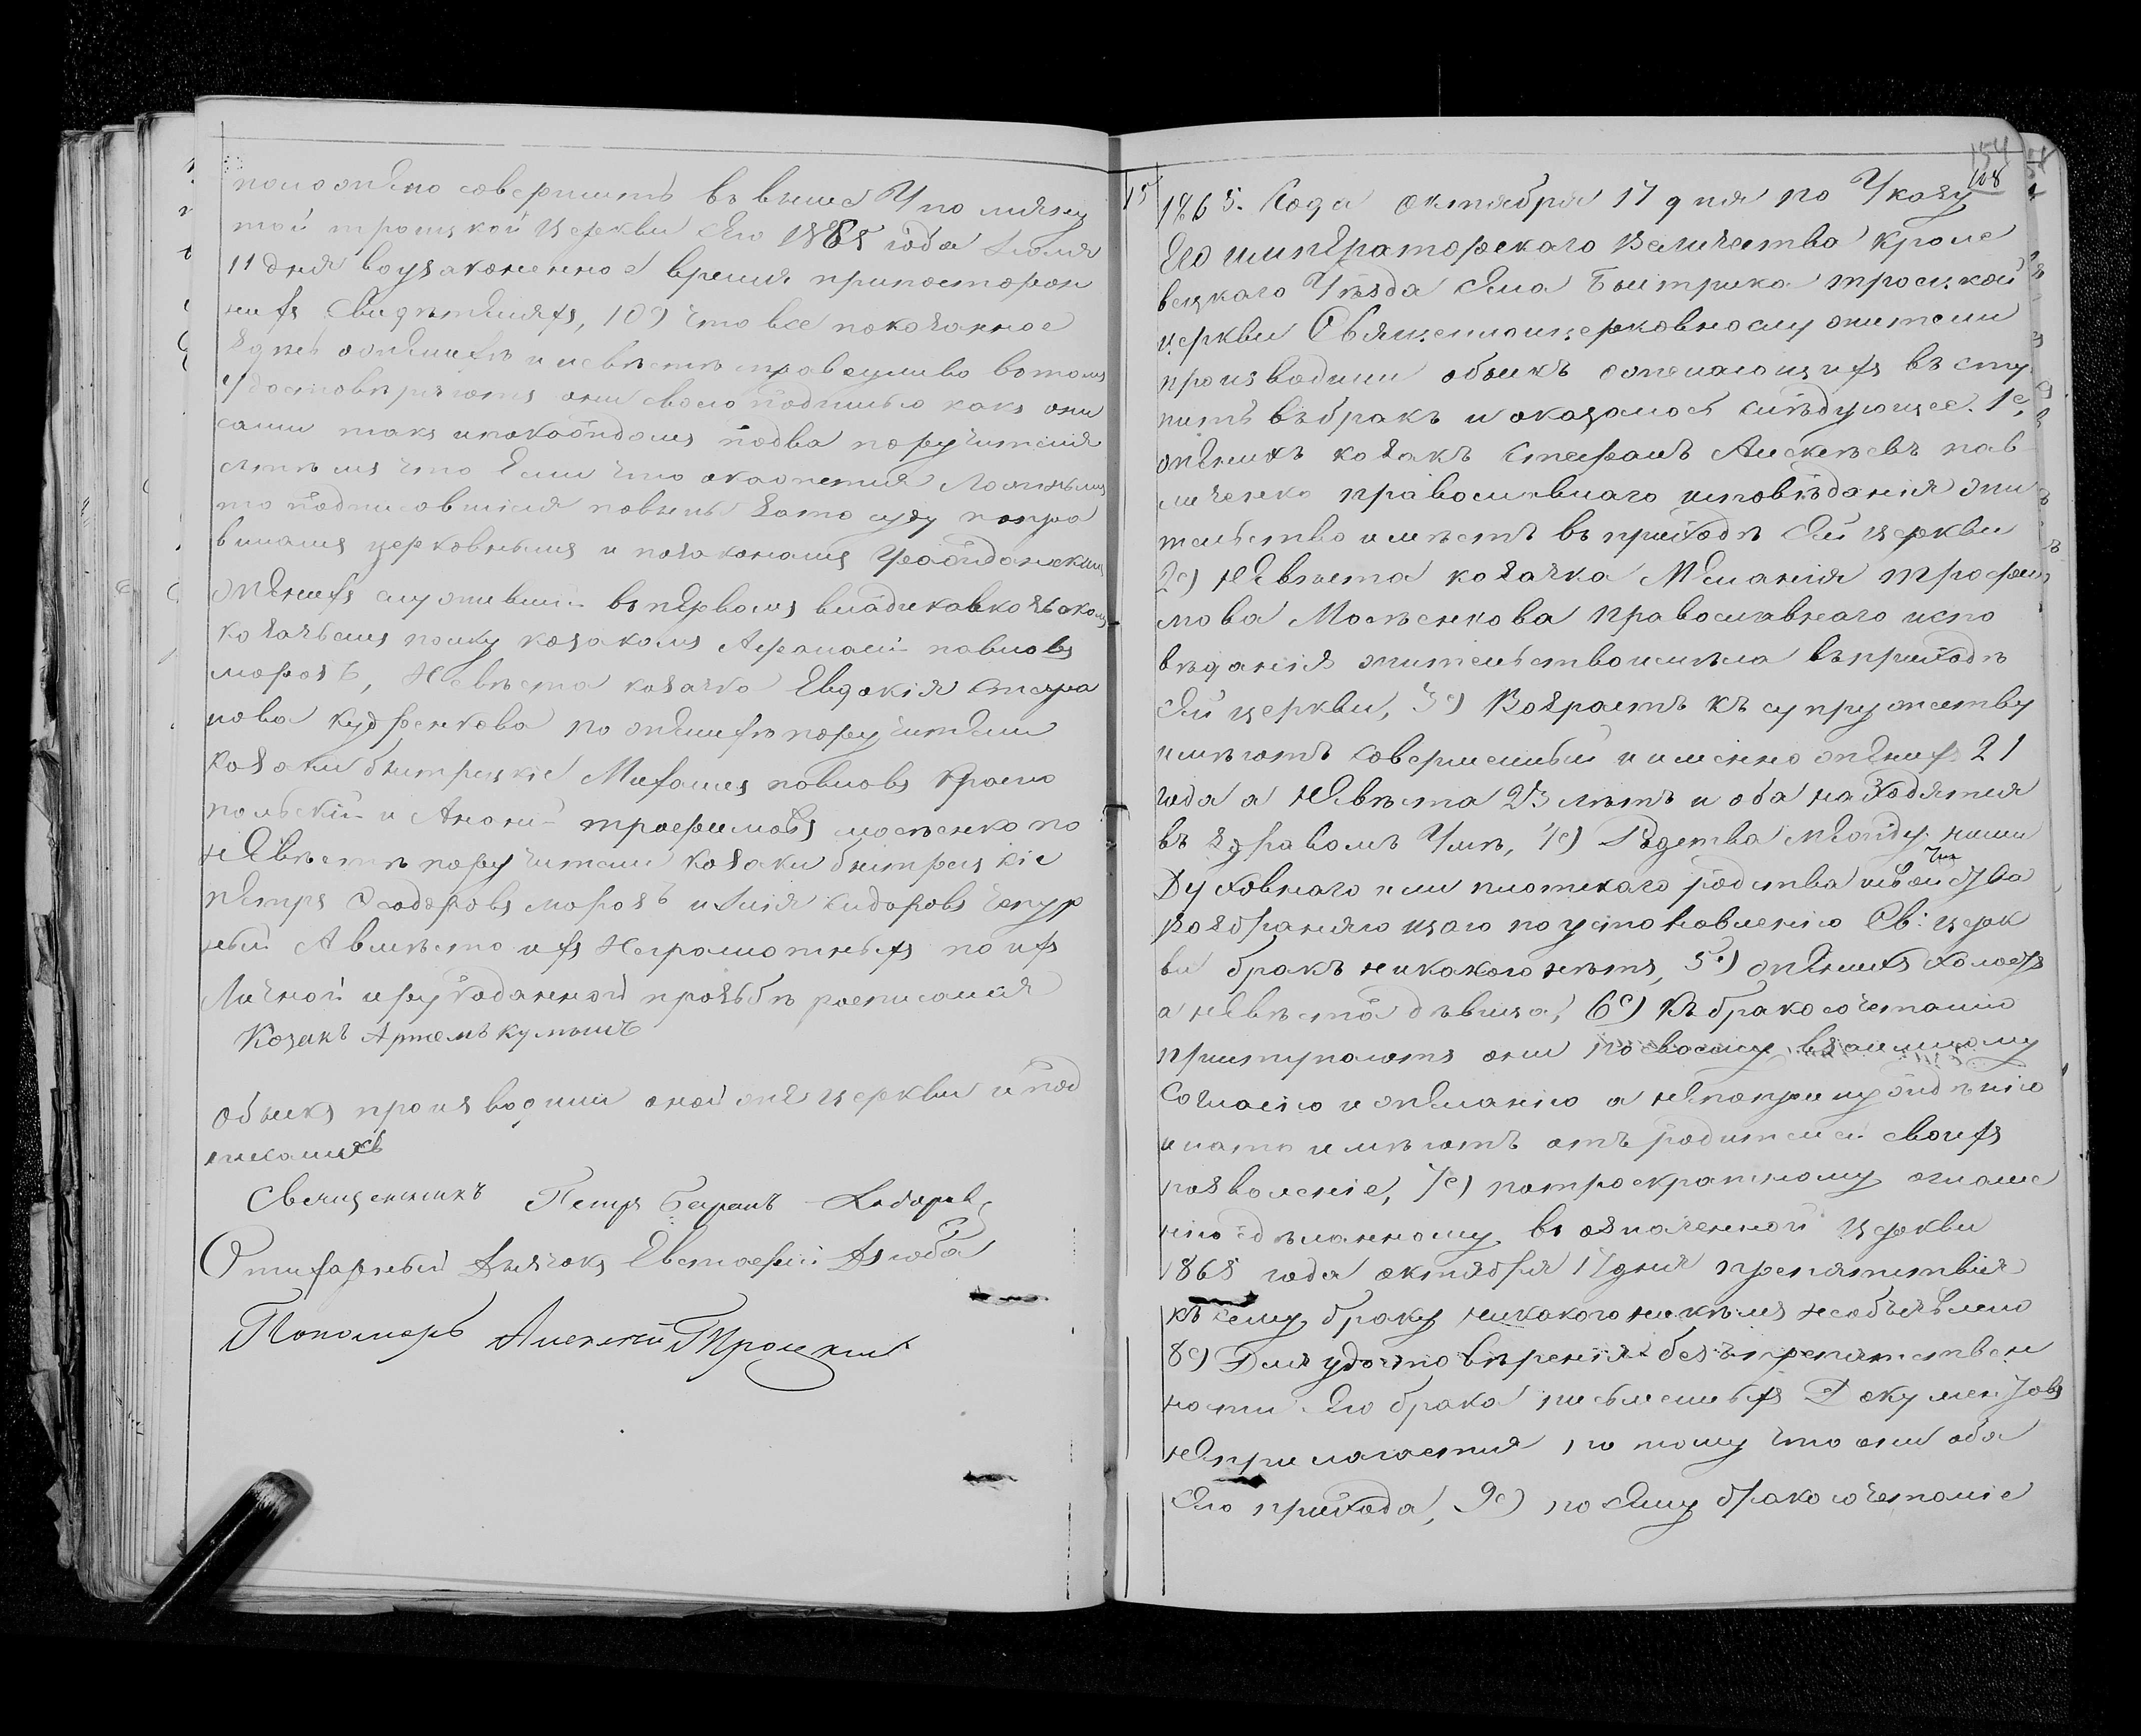 положено совершить въ выше Упомяну
той троицкой церкви сего 1865 года Июля
11 дня воузаконенное время припосторон
нихъ Свидѣтеляхъ, 10) что все показанное
здѣсь оженихѣ и невѣстѣ праведливо вътомъ
удостовѣряютъ они своею подписью какъ они
сами такъ ипокаждомъ подва поручителя
стѣмъ что Если что окажется Ложнымъ
то подписавшіеся повинны зато суду попра
виламъ церковнымъ и позаконамъ гражданскимъ
женихъ служившій въ первомъ владикавказскомъ
козачьемъ полку козакомъ Афанасій павловъ
морозъ, Невѣста козачка Евдокія Стефа
нова кудренкова по женихѣ поручители
козаки быстрицкіе Михаилъ павловъ Красно
польскій и Ананій трофимовъ мосѣенко по
невѣстѣ поручители козаки быстрицкіе
петръ Феодоровъ морозъ иИлія сидоровъ чепур
ный Авмѣсто ихъ Неграмотныхъ по ихъ
Личной ирукоданной прозьбѣ росписался
Козакъ Артемъ кумышъ
Обыскъ производили оной же церкви и под
писались
Священникъ Петръ Баранъ-Ходоров.
Стихарный Дьячокъ Евстафій Дзюба
Пономарь Алексій Троицкій
154
108
15
1865. Года октября 17 дня по Указу
Его императорскаго Величества Кроле
вецкаго Уѣзда села Быстрика троицкой
церкви Священноцерковнослужители
производили обыскъ ожелающихъ въсту
пить въбракъ и оказалось слѣдующее. 1е,
женихъ козакъ Стефанъ Алексѣевъ пав
люченко православнаго исповѣданія жи
тельство имѣетъ въ приходѣ сей церкви
2е) Невѣста козачка Меланія трофи
мова Мосѣенкова православнаго испо
вѣданія жительствоимѣла въприходѣ
сей церкви, 3е) Возрастъ къ супружеству
имѣютъ совершенный и именно женихъ 21
года а невѣста 23 лѣтъ и оба находятся
въ здравомъ Умѣ, 4е) Родства между ними
Духовнаго или плотскаго родства исвойства
возбраняющаго поустановленію Св: церк
ви бракъ никакого нѣтъ, 5е) женихъ холостъ
а невѣста дѣвица, 6е) Къ бракосочетанію
приступаютъ они по своему взаимному
Согласію и желанію а непопринужденію
инато имѣютъ отъ родителей своихъ
позволеніе, 7е) потроекратному оглаше
нію сдѣланному въ означенной церкви
1865 года октября 17дня препятствія
къ сему браку никакого никѣмъ необъявлено
8е) Для удостовѣренія безъпрепятствен
ности сего брака письменныхъ Документовъ
неприлагается потому что они оба
сего прихода, 9е) посему бракосочетаніе